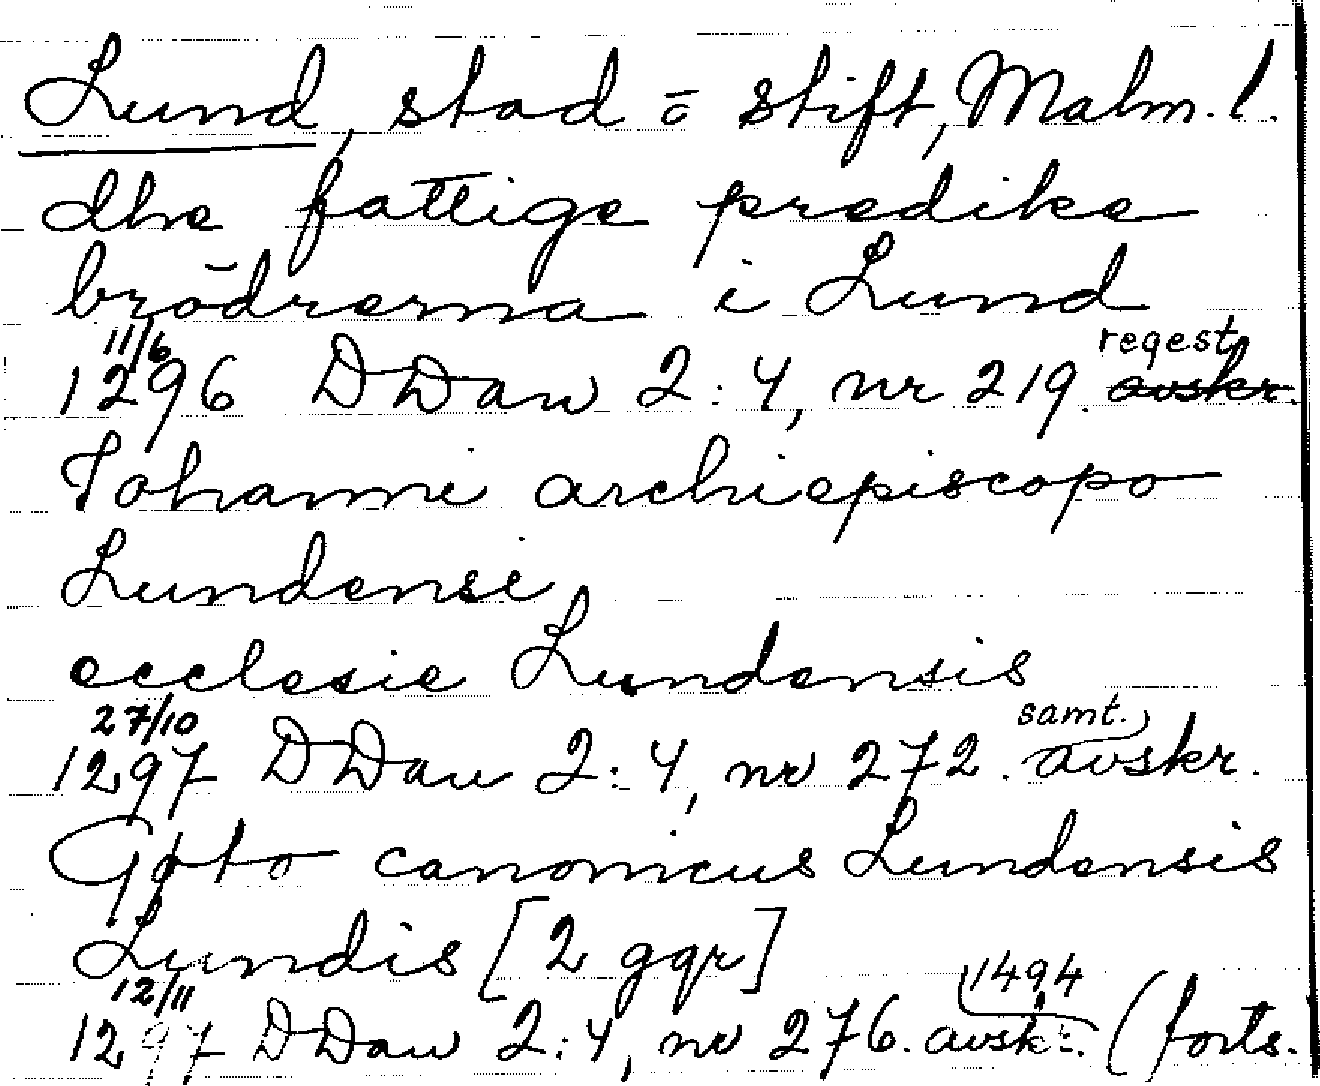 Lund, stad o stift, Malm. l.
dhe fattige predike
brödrerna i Lund
11/6 regest.
1296 DDan 2:4, nr 219. avskr.
Johanni archiepiscopo
Lundensi
ecclesie Lundensis
27/10 samt.
1297 DDan 2:4, nr 272. avskr.
canonicus Lundensis
Lundis [2 ggr]
12/11 1494
1297 DDan 2:4, nr 276. avskr. (forts.